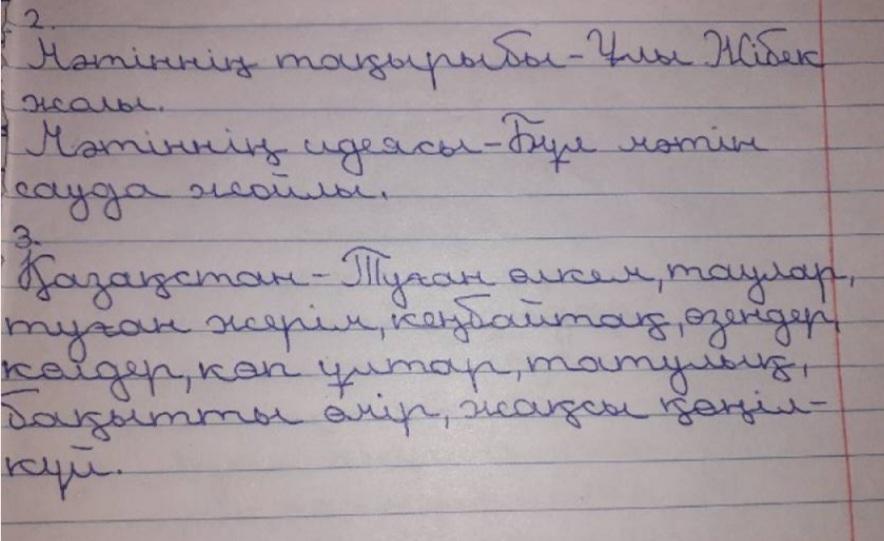 2.
Мәтіннің тақырыбы-Ұлы Жібек
жолы.
Мәтіннің идеясы-Бұл мәтін
сауда жайлы.
3.
Қазақстан-Туған өлкем, таулар,
туған жерім, кеңбайтақ, өзендер,
көлдер, көп ұлтар, татулық,
бақытты өмір, жақсы көңіл-
күй.